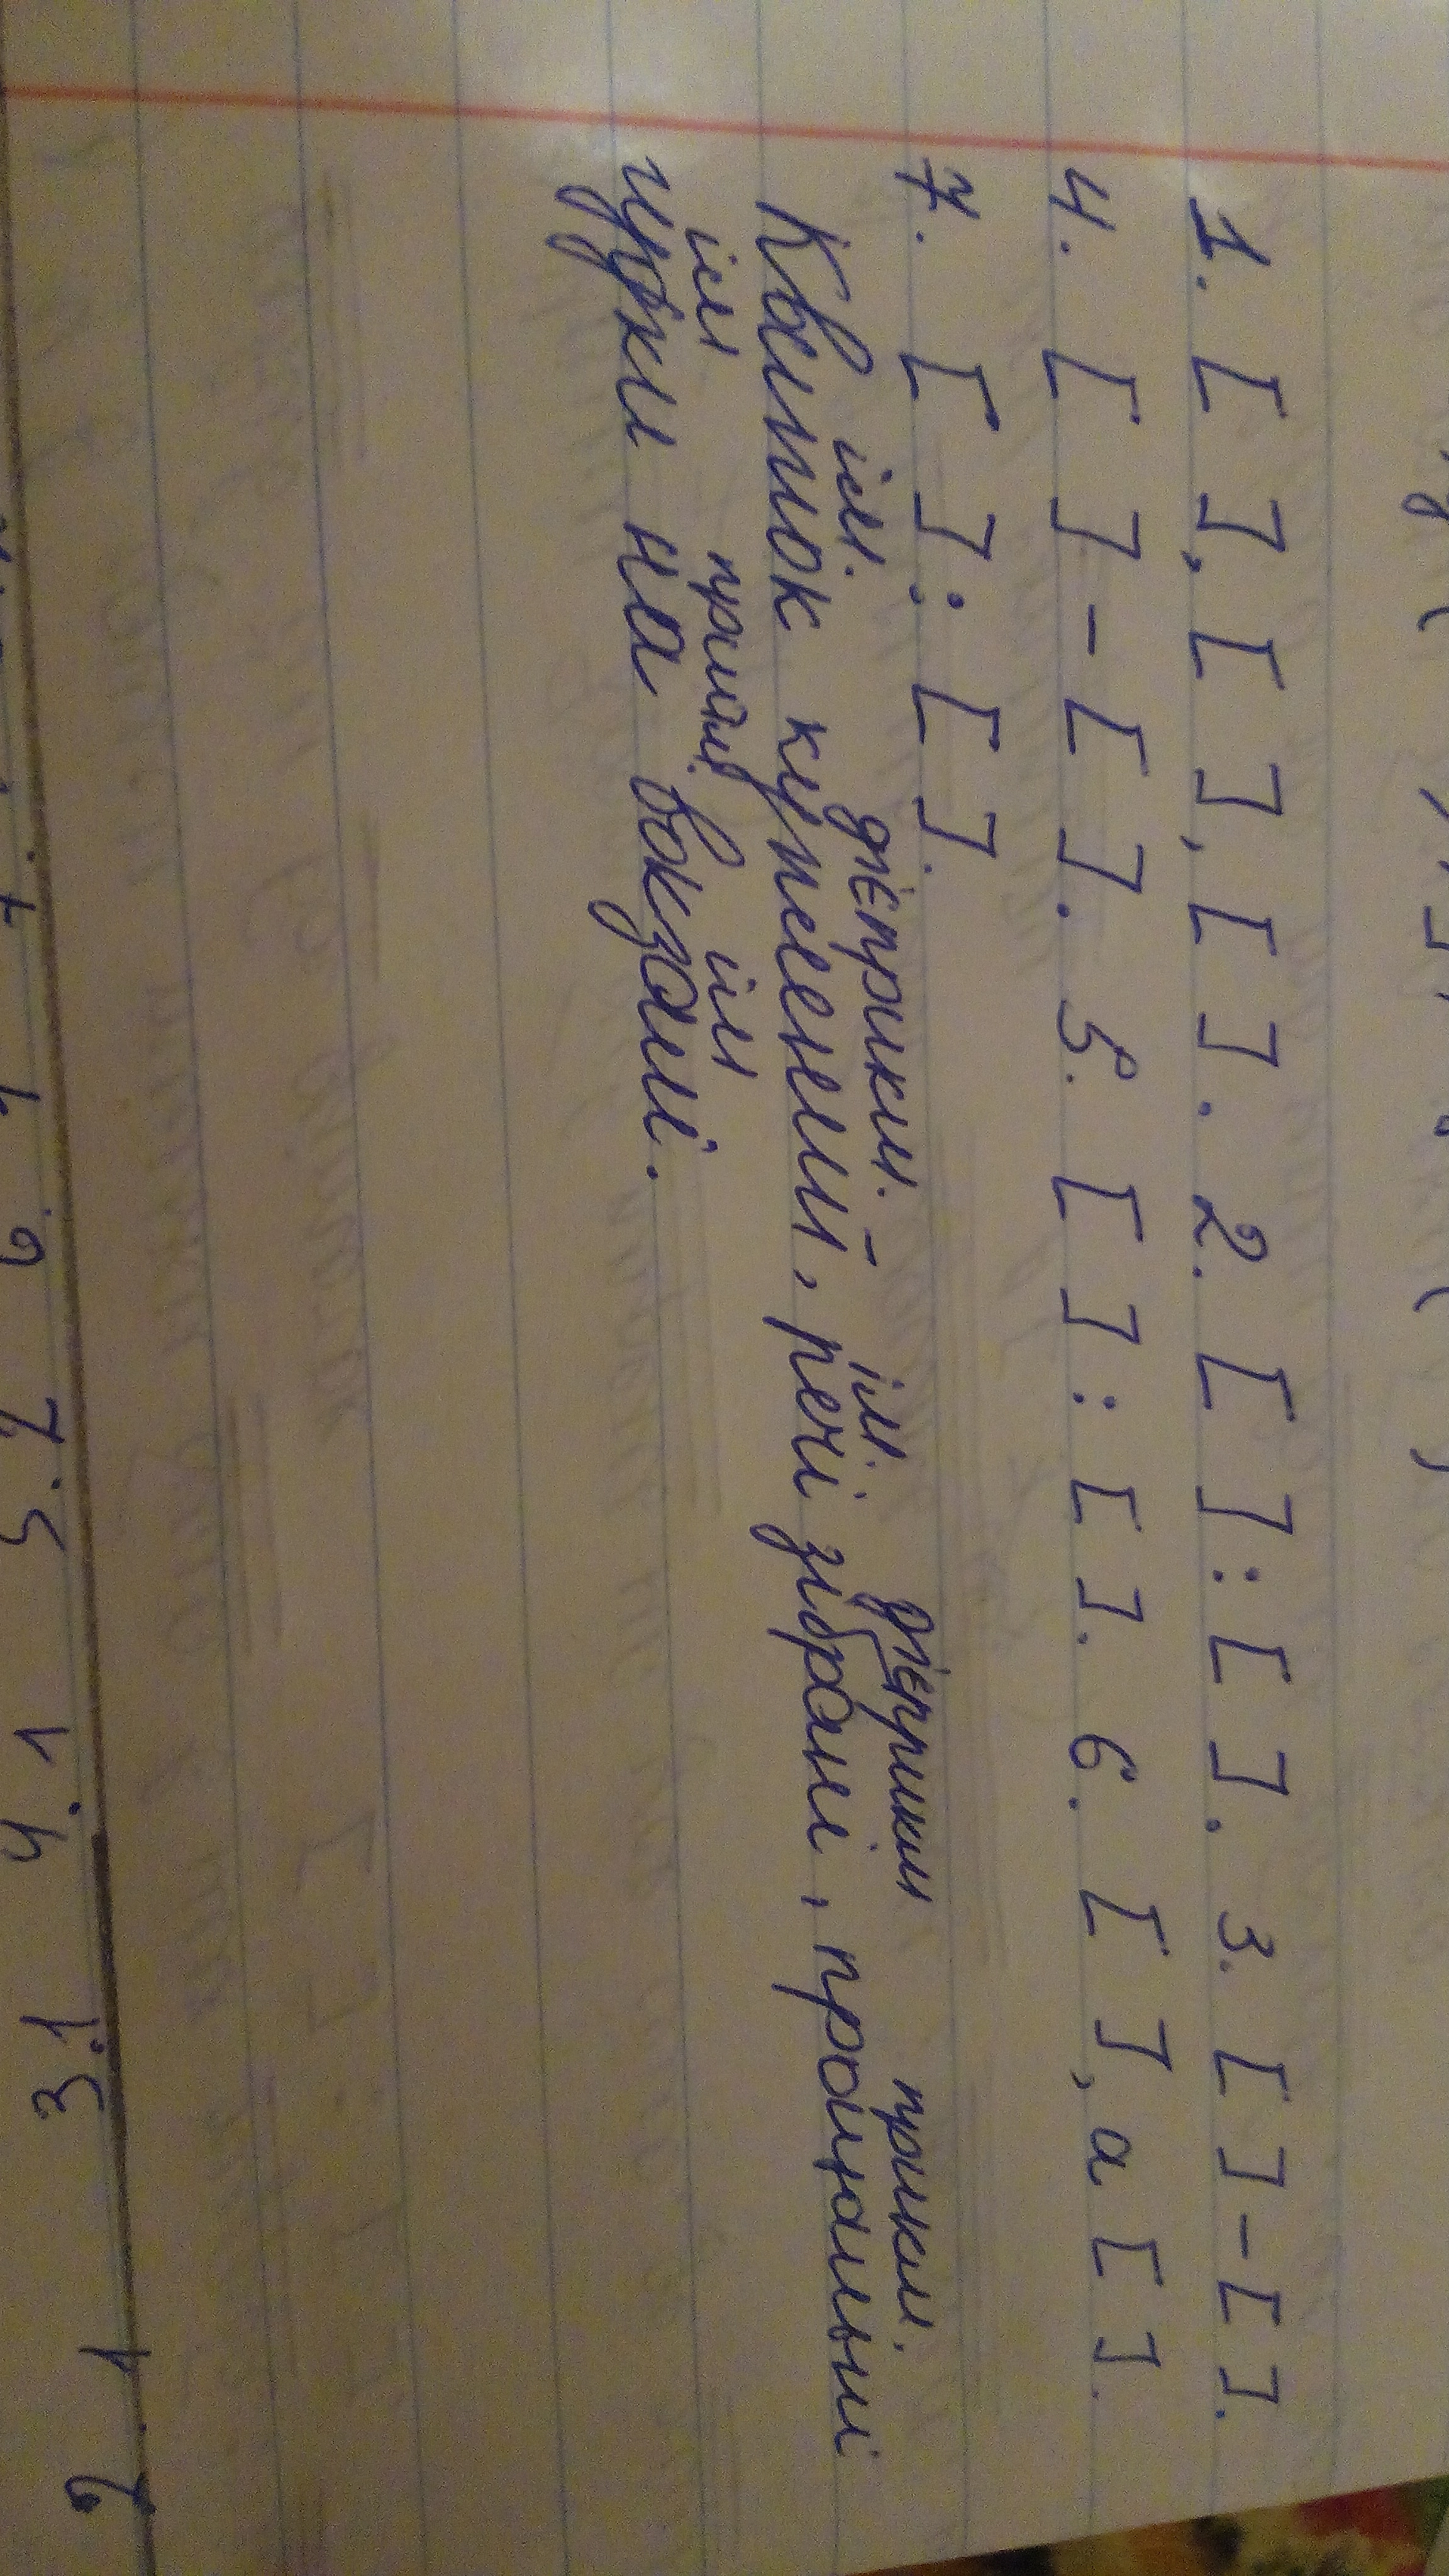 1. [ ], [ ], [ ]. 2. [ ]: [ ]. 3. [ ]-[ ].
4. [ ]-[ ]. 5. [ ]: [ ]. 6. [ ], а [ ].
7. [ ]: [ ].
ім. дієприкм. - ім дієприкм прикм.
Квиток куплений, речі зібрані, прощальні
ім прийм. ім
гудки на вокзалі.
2. 1 3.1 4. 1 5. 2 6.